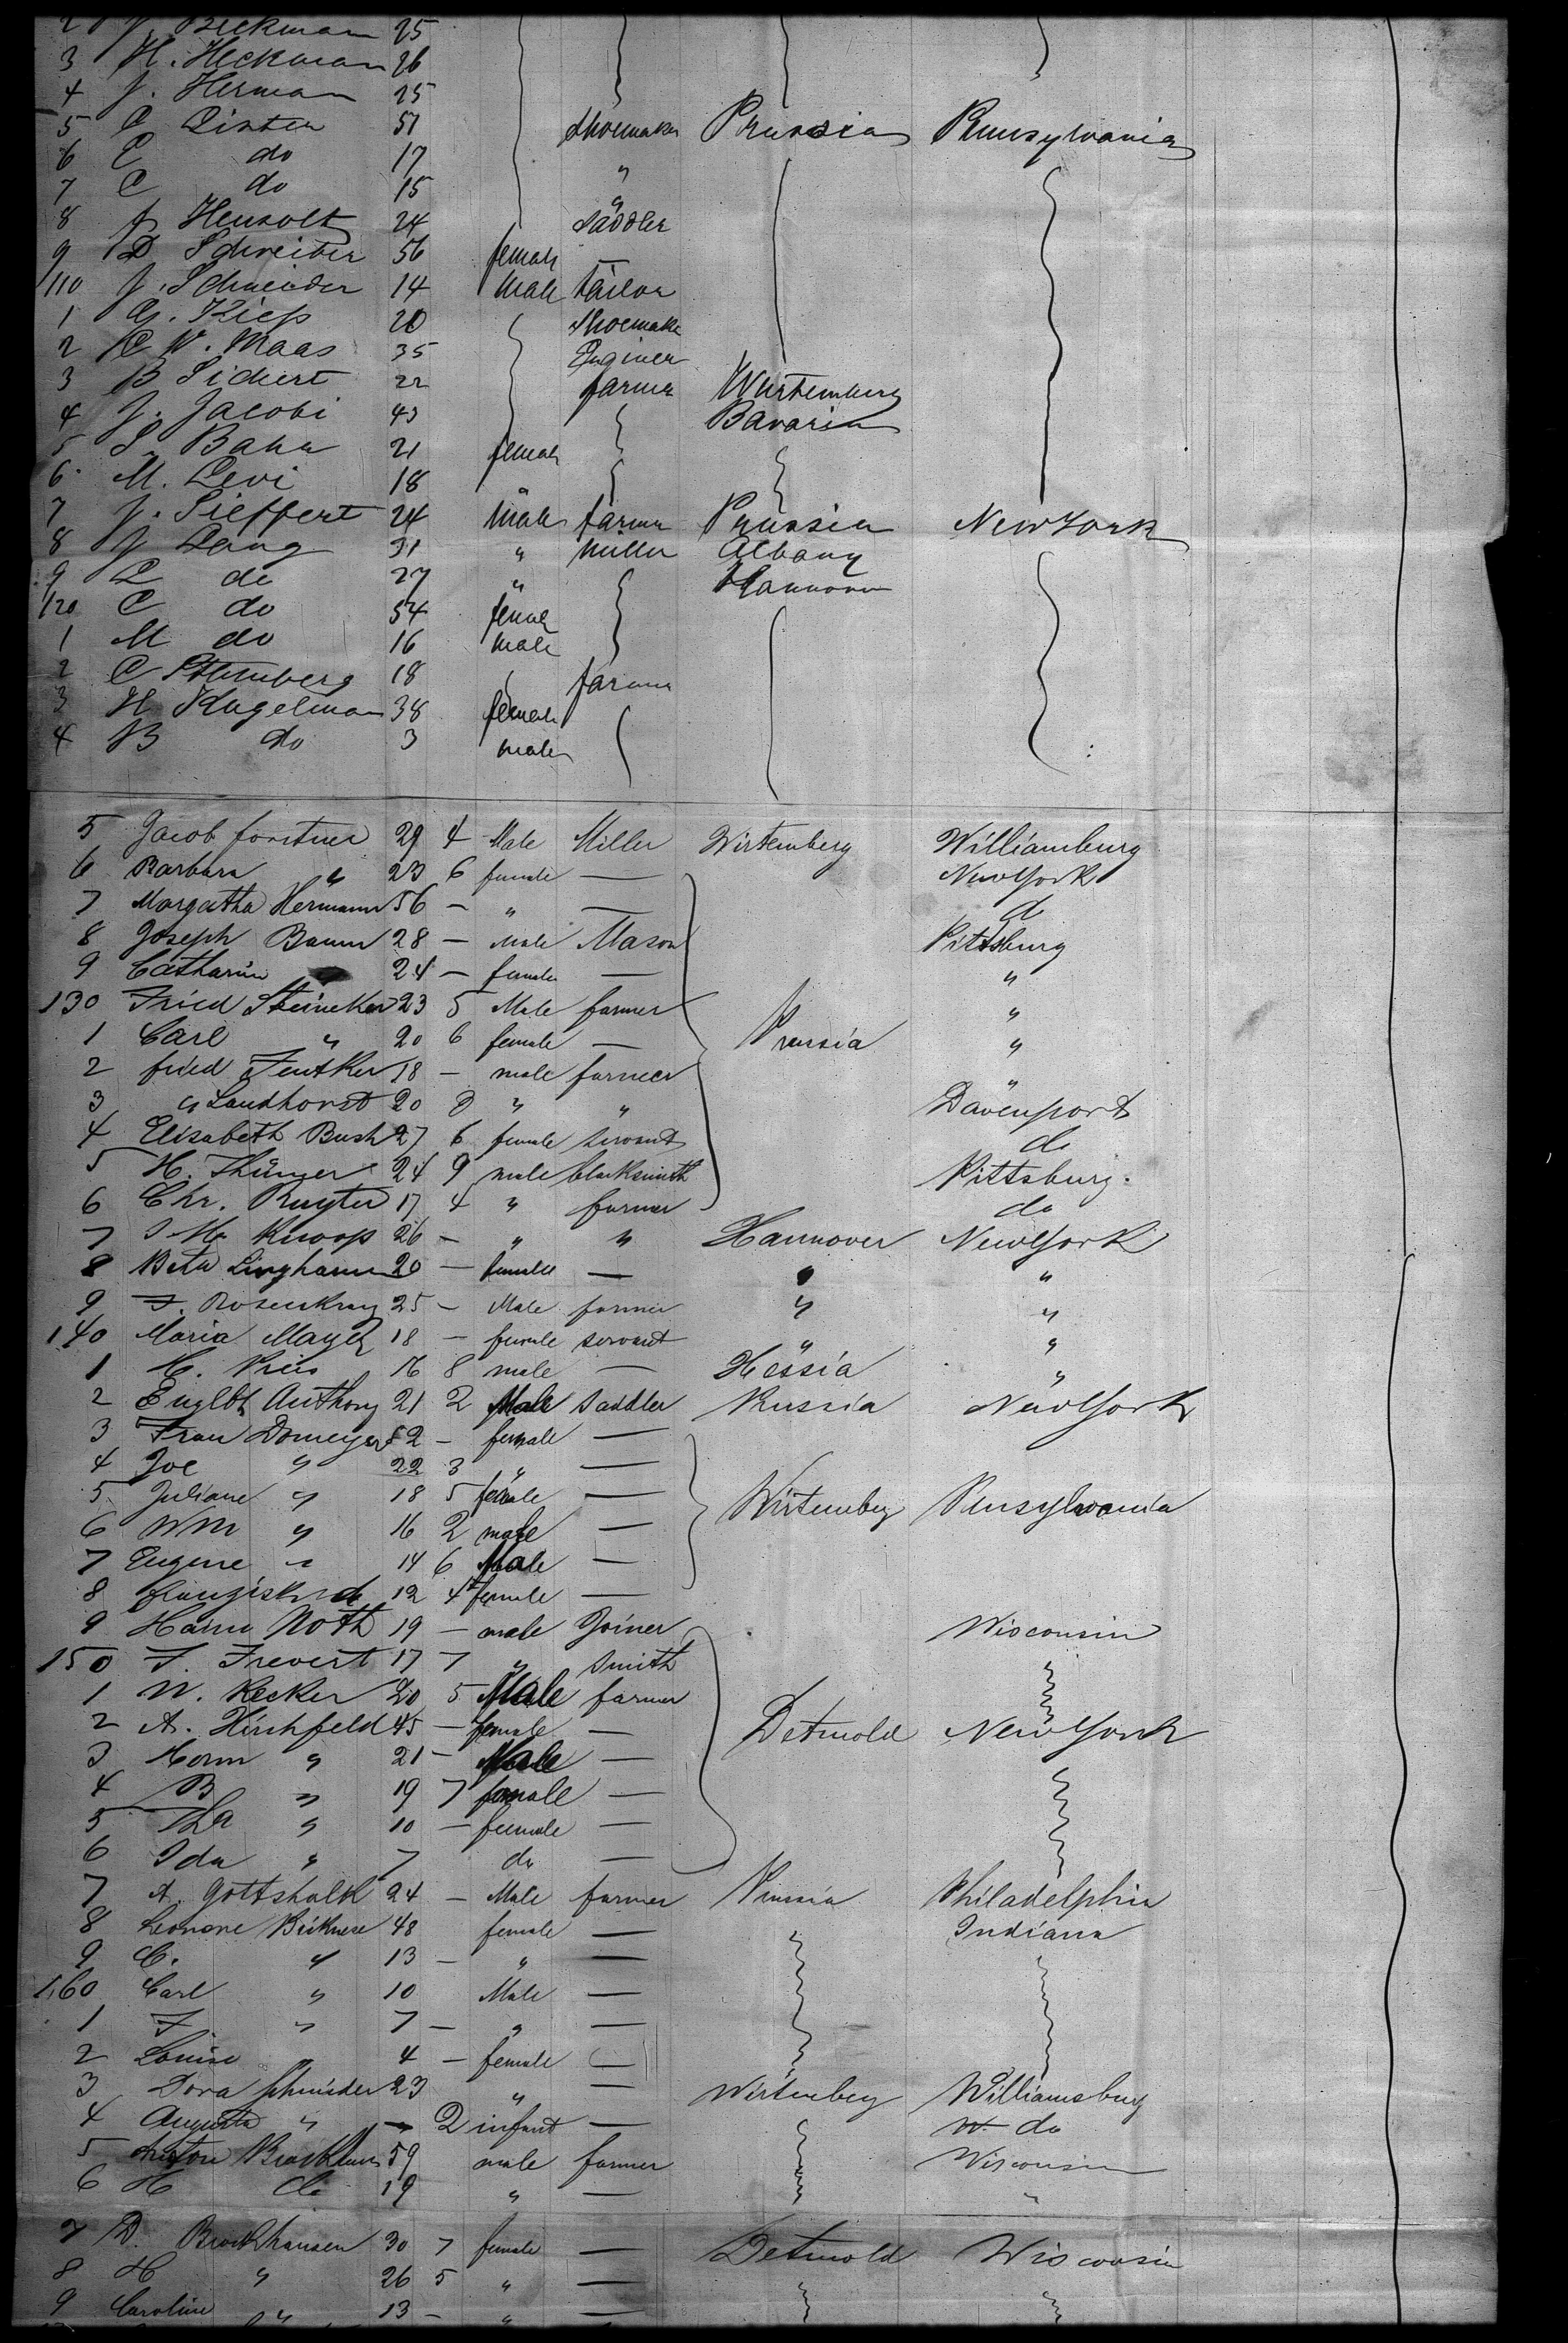 2 J. Beckman 25
3 H. Heckman 26
4 J. Herman 25
5 C Linten 51 Shoemaker Prussia Pennsylvania
6 E do 17 "
7 C do 15 "
8 J Hensolt 24 Saddler
9 D Schreiber 56 female —
110 J. Schneider 14 male tailor
1 G. Kiefs 20 Shoemake
2 C W. Maas 35 Enginer
3 B Sichert 22 farmer Wurtemberg
4 J. Jacobi 43 Bavaria
5 S. Bahn 21 female
6 M. Levi 18 "
7 J. Sieffert 24 male farmer Prussia New York
8 J Lang 31 " miller Albany
9 L do 27 " Hannover
120 C do 54 female
1 M do 16 male
2 C Sternberg 18 farmer
3 H Kugelman 38 female
4 B do 3 male
5 Jacob forstner 29 4 Male Miller Wirtemberg Williamburg
6 Barbara " 23 6 female — New York
7 Margatha Hermann 56 — " — do
8 Joseph Baum 28 — Male Mason Pittsburg
9 Catharin 24 — female — "
130 Fried Steineker 23 5 Male farmer "
1 Carl " 20 6 female — Prussia "
2 fried Fentker 18 — male farmer "
3 " Landhorst 20 " " Davenport
4 Elisabeth Bush 27 6 female servant do
5 H. Thünger 24 9 male blacksmith Pittsburg.
6 Chr. Ruyter 17 4 " farmer do
7 J M. Knoop 26 — " " Hannover New York
8 Beta Linghaus 20 — female — " "
9 F. Rosenkranz 25 — Male farmer " "
140 Maria Mayer 18 — female servant " "
1 H. Kries 16 8 male — Hessia "
2 Englbt Anthony 21 2 Male Saddler Russia New York
3 Frau Domeyer 52 — female —
4 Joe " 22 3 " —
5 Juliane " 18 5 female — Wirtemberg Pensylvania
6 Wm " 16 2 male —
7 Eugene " 14 6 Male —
8 Franzisk do 12 4 female —
9 Hann Noth 19 — male Joiner Wisconsin
150 F. Frevert 17 7 " Smith
1 W. Kecker 20 5 Male farmer
2 A. Hirshfeld 45 — female — Detmold New York
3 Herm " 21 — Male —
4 B " 19 7 female —
5 " 10 — female —
6 Ida " 7 do —
7 A. Gottshalk 24 — Male farmer Prussia Philadelphia
8 Leonore 48 female — Indiana
9 C. " 13 — " —
160 Carl " 10 Male —
1 F " 7 — " —
2 Louise " 4 — female —
3 Dora Schneider 23 " — Wirtemberg Williamsburg
4 Augusta " — 2 infant — do
5 Anton 59 male farmer Wisconsin
6 H do 19 " — "
7 D. Brockhausen 30 7 female — Detmold Wisconsin
8 H " 26 5 " —
9 Caroline " 13 — " —